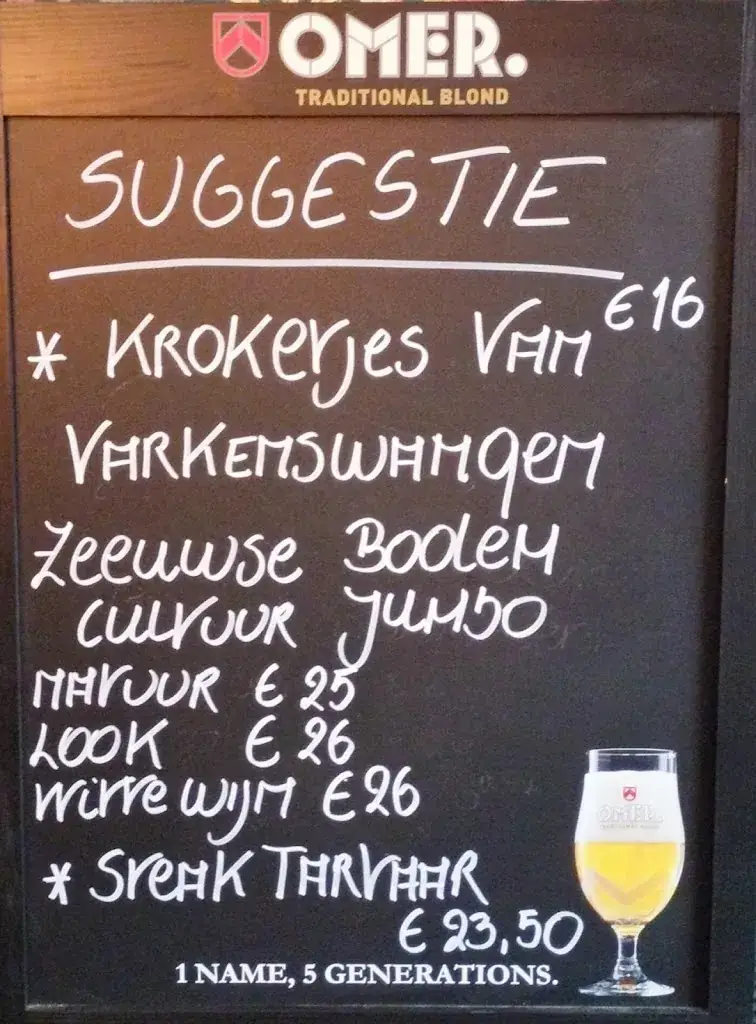 OMER.
TRADITIONAL BLOND
SUGGESTIE
* KROKETJES VAN €16
VARKENSWANGEN
ZEEUWSE BODEM
CULTUUR JUMBO
NATUUR € 25
LOOK € 26
WITTE WIJN € 26
* STEAK TARTAAR
€ 23,50
OMER.
TRADITIONAL BLOND
1 NAME, 5 GENERATIONS.